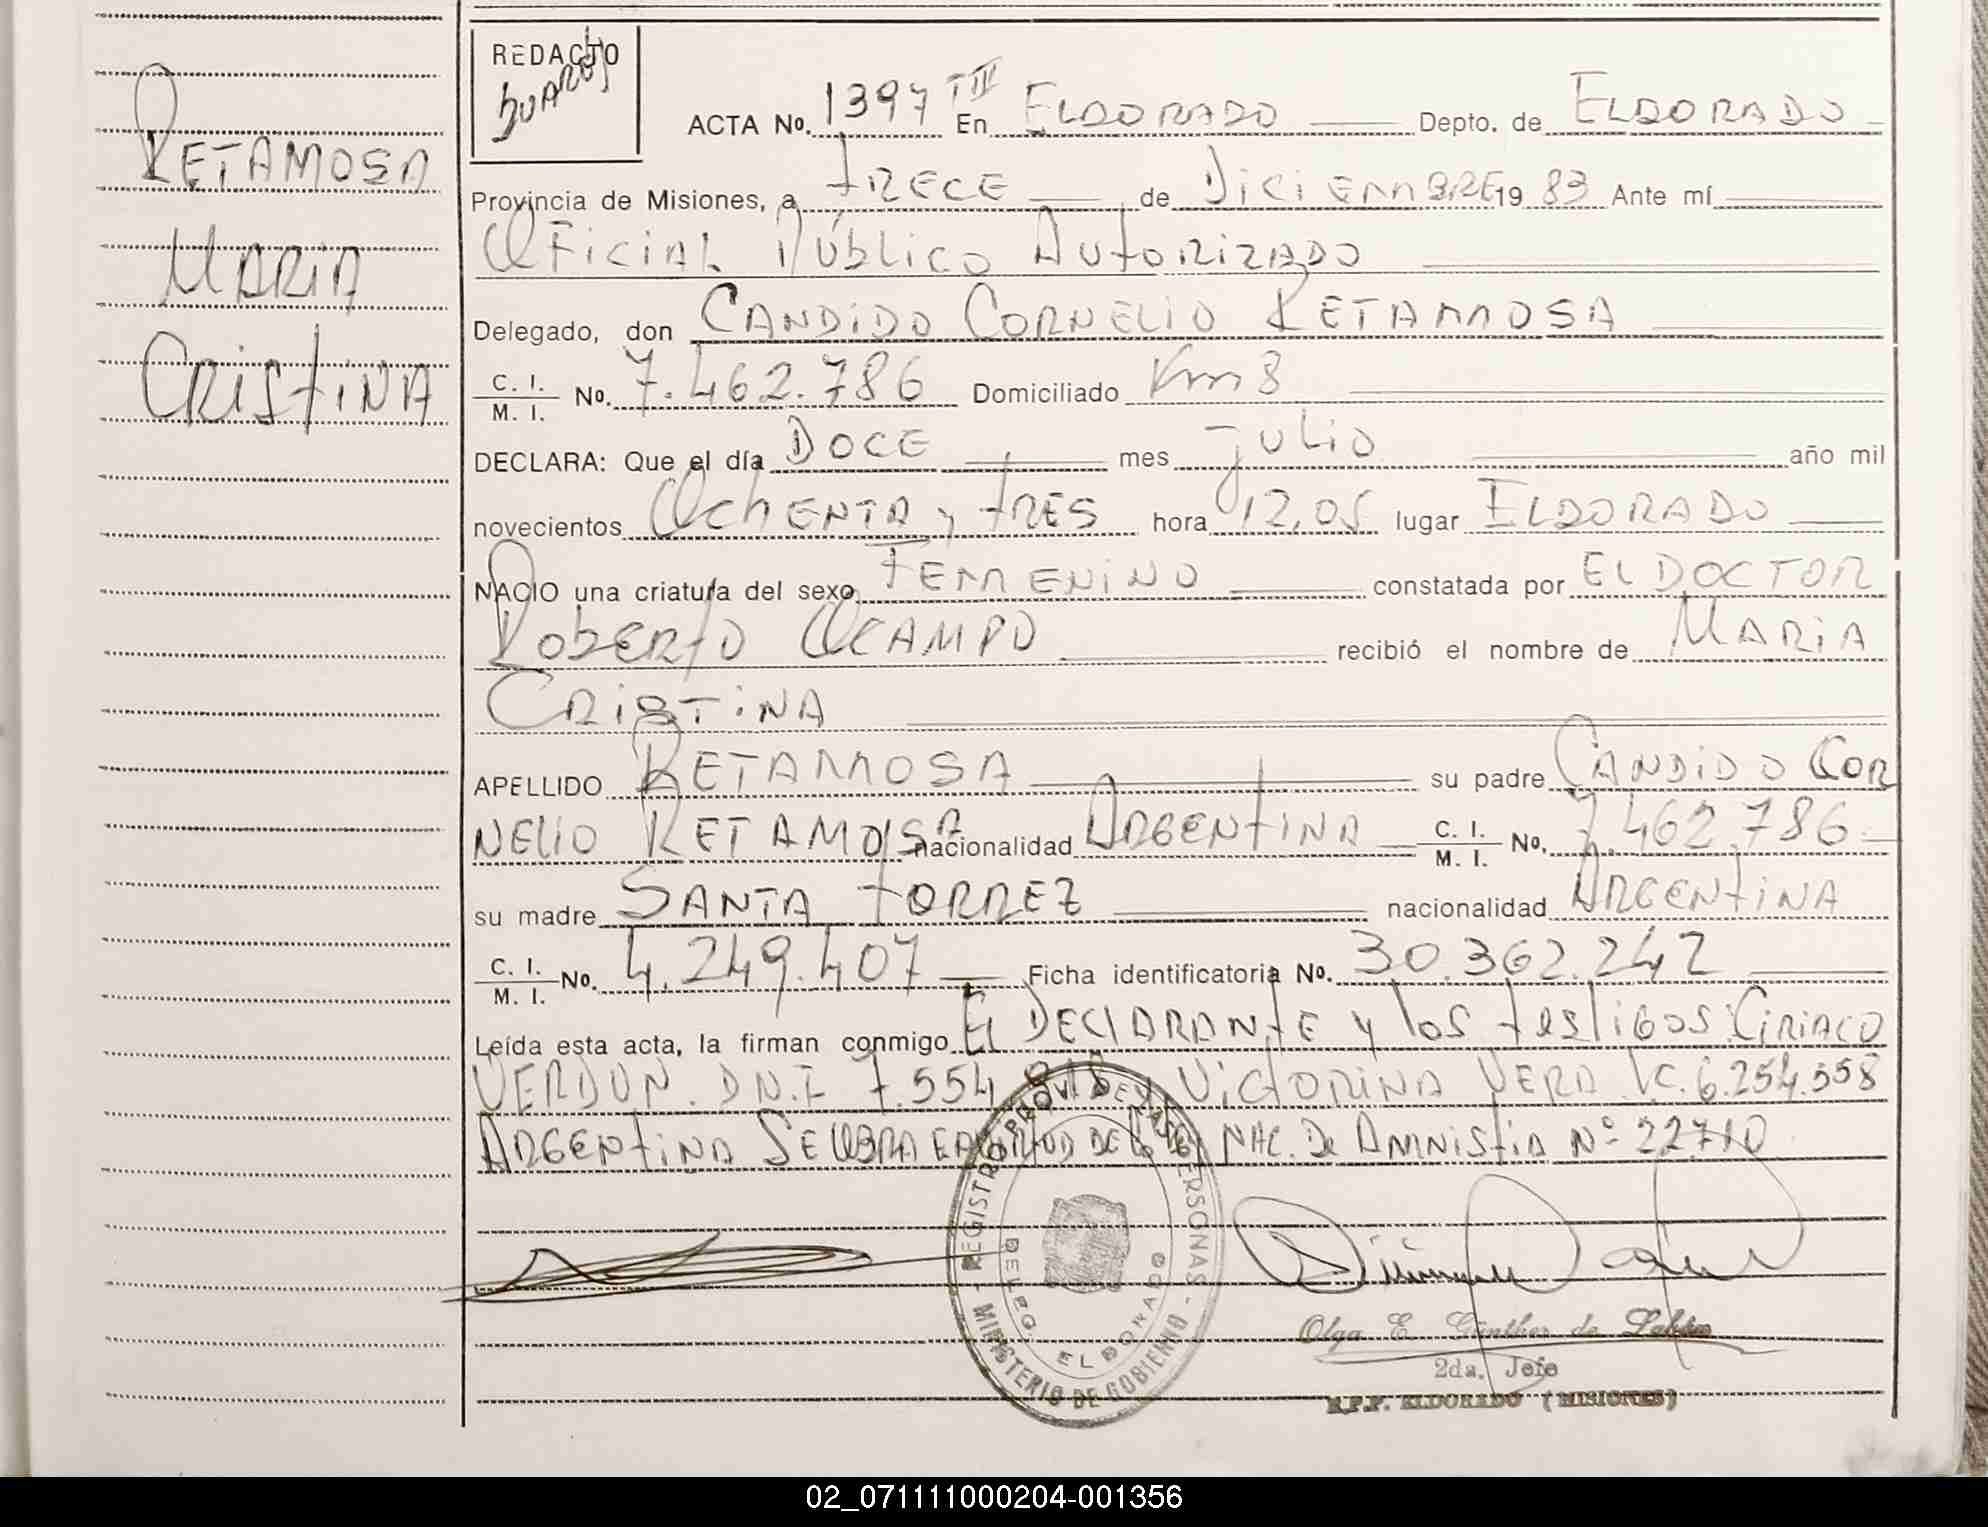 RETAMOSA
MARIA
CRISTINA
REDACTO
ACTA No. 1397 TIII En ELDORADO Depto. de ELDORADO
Provincia de Misiones, a TRECE de DICIEMBRE 1983 Ante mí
OFICIAL PÚBLICO AUTORIZADO
Delegado, don CANDIDO CORNELIO RETAMOSA
C. I. / M. I. No. 7.462.786 Domiciliado Km 8
DECLARA: Que el día DOCE mes julio año mil
novecientos OCHENTA y TRES hora 12,05 lugar ELDORADO
NACIO una criatura del sexo FEMENINO constatada por EL DOCTOR
ROBERTO OCAMPO recibió el nombre de MARIA
CRISTINA
APELLIDO RETAMOSA su padre CANDIDO COR
NELIO RETAMOSA nacionalidad ARGENTINA C. I. / M. I. No. 7.462.786
su madre SANTA TORREZ nacionalidad ARGENTINA
C. I. / M. I. No. 4.249.407 Ficha identificatoria No. 30.362.242
Leída esta acta, la firman conmigo El DECLARANTE y los testigos: CIRIACO
VERDUN. D.N.I. 7.554. VICTORINA VERA 6.254.558
ARGENTINA SE LABRA EN VIRTUD DE LA LEY NAC. De AMNISTIA Nº 22710
REGISTRO PROV. DE LAS PERSONAS - MINISTERIO DE GOBIERNO -
DELEG. ELDORADO
Olga E. Günther de
2da. Jefe
R.P.P. ELDORADO (MISIONES)
02_071111000204-001356